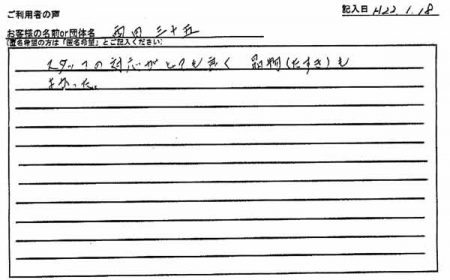 ご利用者の声
記入日 H22.1.18
お客様の名前or団体名 羽田 三十五
(匿名希望の方は「匿名希望」とご記入ください)
スタッフの対応がとても良く 品物(たすき)も
よかった。